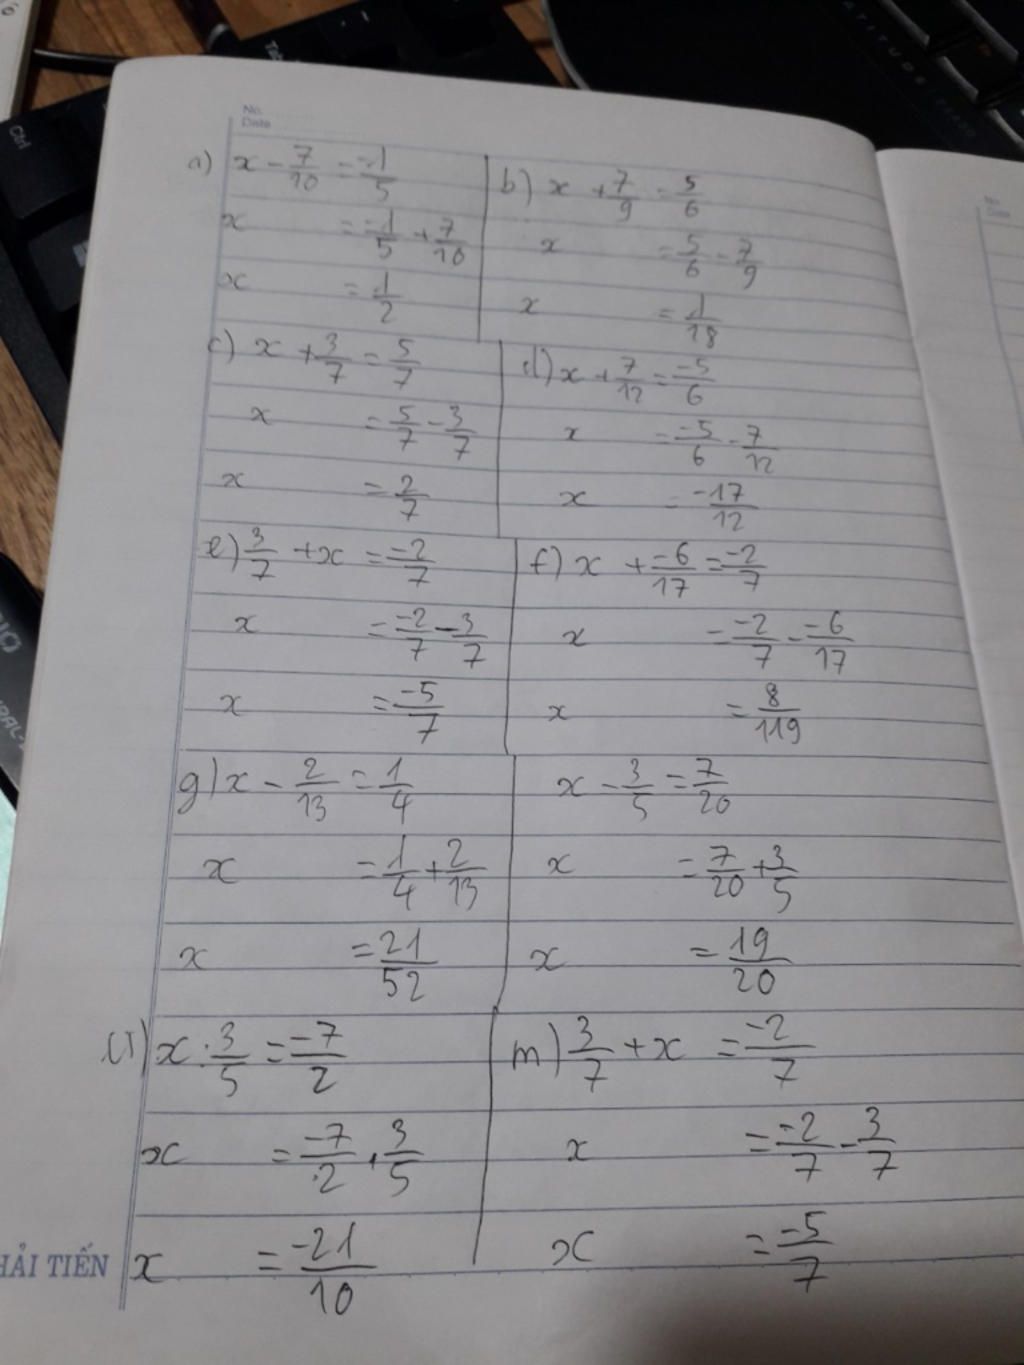 No.
Date
a) x - 7/10 = -1/5
x = -1/5 + 7/10
x = 1/2
b) x + 7/9 = 5/6
x = 5/6 - 7/9
x = 1/18
c) x + 3/7 = 5/7
x = 5/7 - 3/7
x = 2/7
d) x + 7/12 = -5/6
x = -5/6 - 7/12
x = -17/12
e) 3/7 + x = -2/7
x = -2/7 - 3/7
x = -5/7
f) x + -6/17 = -2/7
x = -2/7 - -6/17
x = 8/119
g) x - 2/13 = 1/4
x = 1/4 + 2/13
x = 21/52
x - 3/5 = 7/20
x = 7/20 + 3/5
x = 19/20
x : 3/5 = -7/2
x = -7/2 . 3/5
x = -21/10
m) 3/7 + x = -2/7
x = -2/7 - 3/7
x = -5/7
HẢI TIẾN
Ctrl
Tab